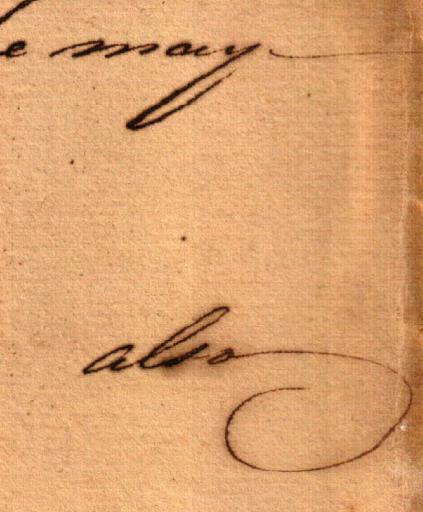 e may
also